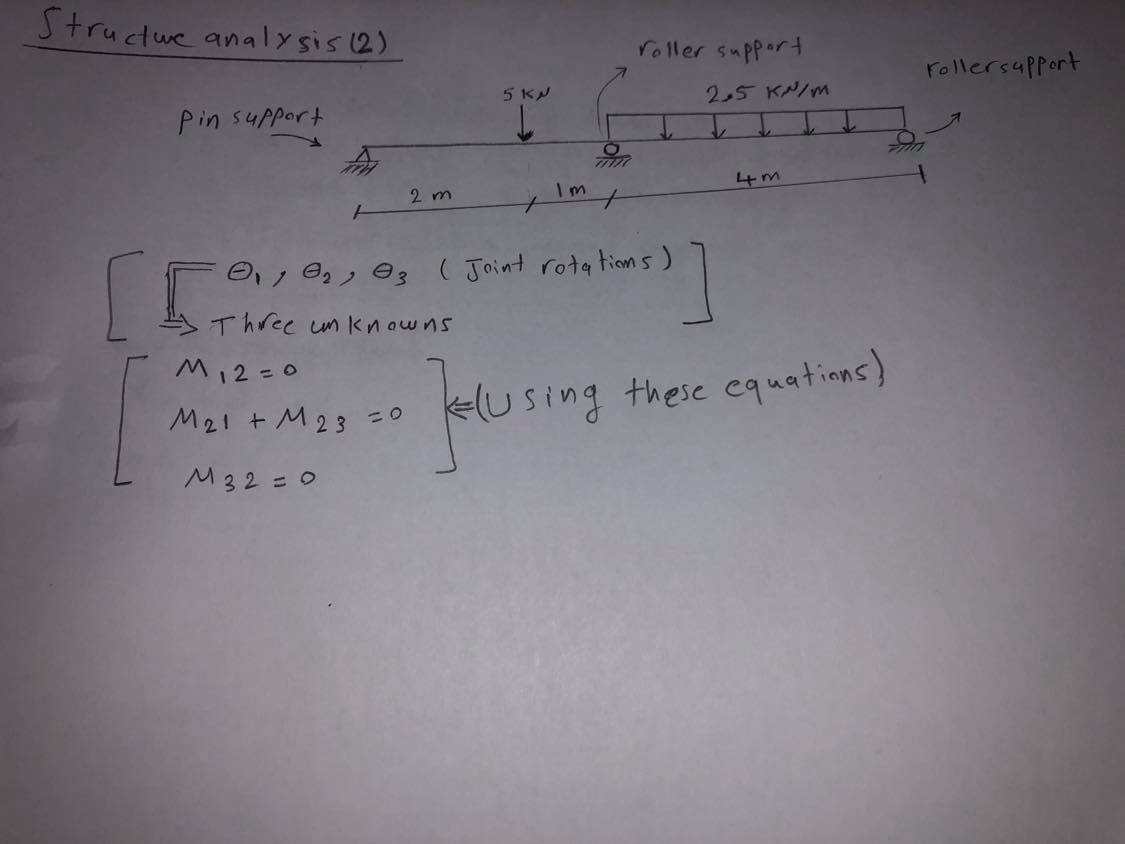 Structure analysis (2)
roller support
roller support
5 KN
2,5 KN/m
Pin support
2 m
1 m
4 m
θ1, θ2, θ3 (Joint rotations)
⇒ Three unknowns
M12 = 0
M21 + M23 = 0
⇐ (Using these equations)
M32 = 0